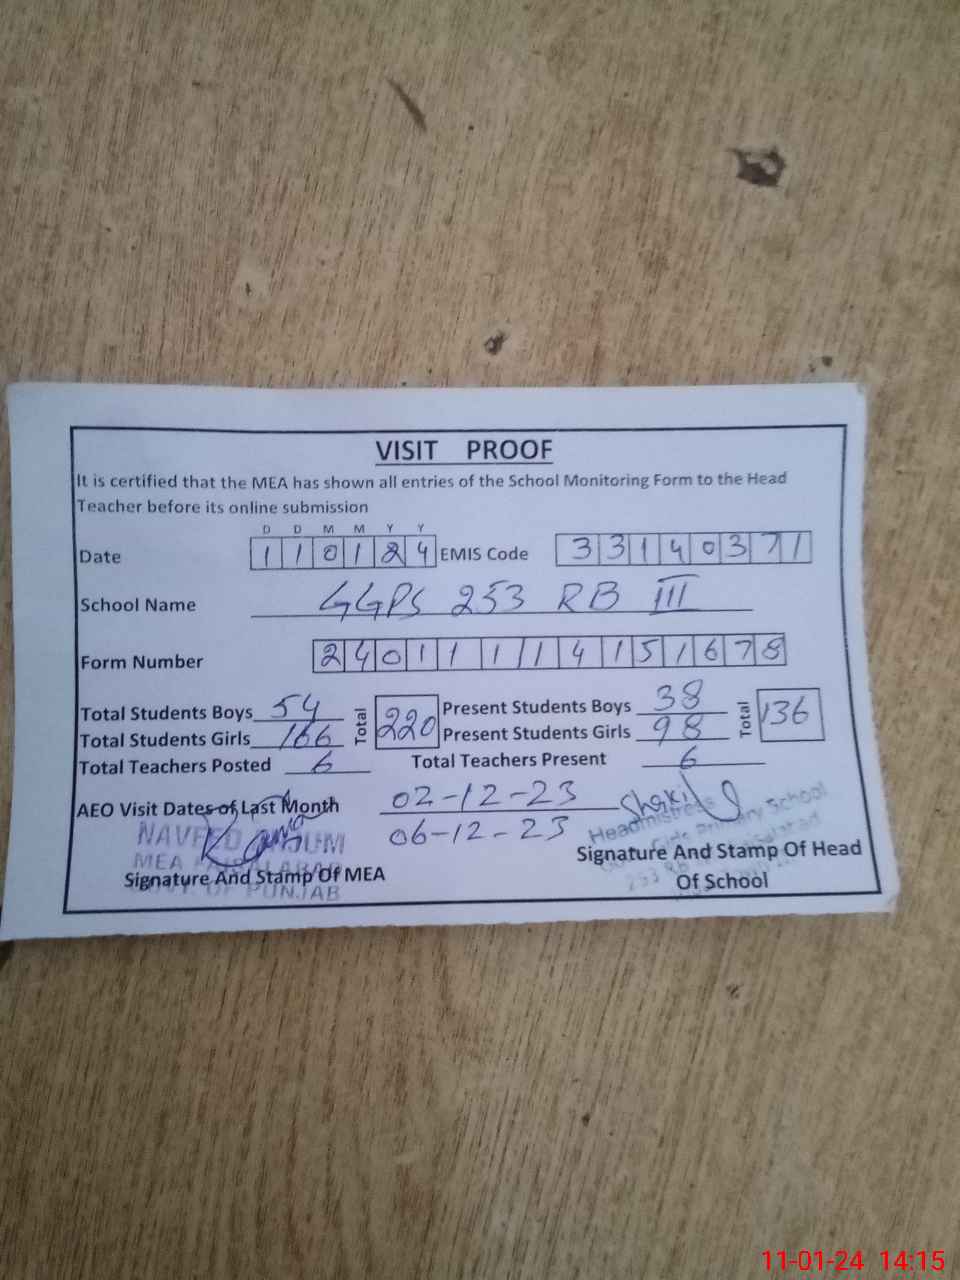 VISIT PROOF
It is certified that the MEA has shown all entries of the School Monitoring Form to the Head
Teacher before its online submission
D D M M Y Y
Date 1 1 0 1 2 4 EMIS Code 3 3 1 4 0 3 7 1
School Name GGPS 253 RB III
Form Number 2 4 0 1 1 1 1 4 1 5 1 6 7 8
Total Students Boys 54 Total 220 Present Students Boys 38 Total 136
Total Students Girls 166 Present Students Girls 98
Total Teachers Posted 6 Total Teachers Present 6
AEO Visit Dates of Last Month 02-12-23
06-12-23
NAVEED
MEA FAISALABAD
OF PUNJAB
Signature And Stamp Of MEA
Headmistress
Girls Primary School
253 RB
Signature And Stamp Of Head
Of School
11-01-24 14:15